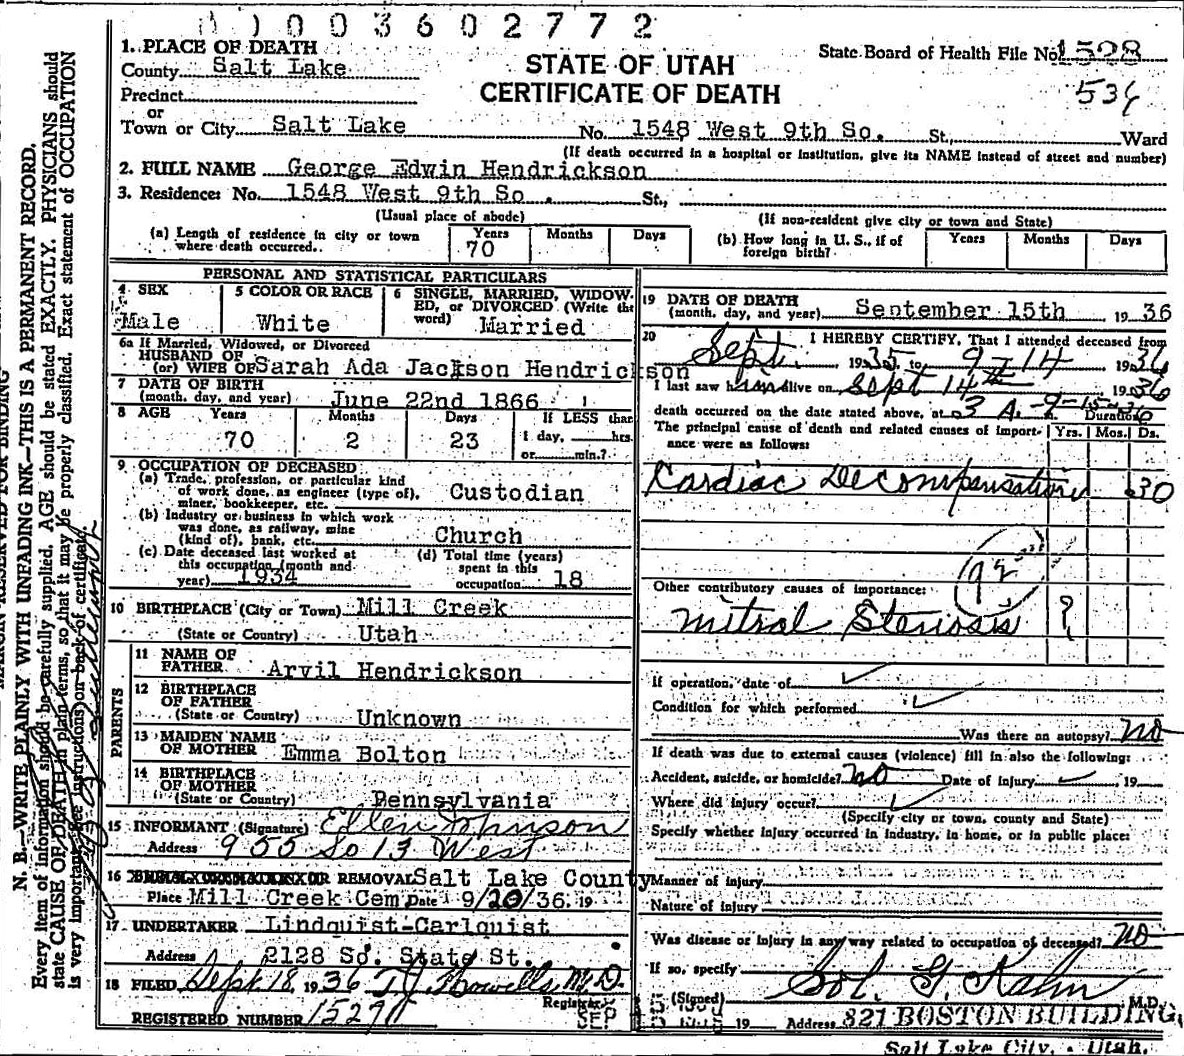 0 0 3 6 0 2 7 7 2
1. PLACE OF DEATH
County Salt Lake
Precinct
or
Town or City Salt Lake
STATE OF UTAH
CERTIFICATE OF DEATH
State Board of Health File No. 1528
534
No. 1548 West 9th So. St., Ward
(If death occurred in a hospital or institution, give its NAME instead of street and number)
2. FULL NAME George Edwin Hendrickson
3. Residence: No. 1548 West 9th So . St.,
(Usual place of abode)
(If non-resident give city or town and State)
(a) Length of residence in city or town where death occurred.. Years 70 Months Days
(b) How long in U. S., if of foreign birth? Years Months Days
PERSONAL AND STATISTICAL PARTICULARS
4 SEX Male
5 COLOR OR RACE White
6 SINGLE, MARRIED, WIDOW-
ED, or DIVORCED (Write the
word) Married
6a If Married, Widowed, or Divorced
HUSBAND OF
(or) WIFE OF Sarah Ada Jackson Hendrickson
7 DATE OF BIRTH
(month, day, and year) June 22nd 1866
8 AGE Years Months Days If LESS than
70 2 23 1 day, hrs.
or min.?
9. OCCUPATION OF DECEASED:
(a) Trade, profession, or particular kind
of work done, as engineer (type of),
miner, bookkeeper, etc. Custodian
(b) Industry or business in which work
was done, as railway, mine
(kind of), bank, etc. Church
(c) Date deceased last worked at
this occupation (month and
year) 1934
(d) Total time (years)
spent in this
occupation 18
10 BIRTHPLACE (City or Town) Mill Creek
(State or Country) Utah
PARENTS
11 NAME OF
FATHER Arvil Hendrickson
12 BIRTHPLACE
OF FATHER
(State or Country) Unknown
13 MAIDEN NAME
OF MOTHER Emma Bolton
14 BIRTHPLACE
OF MOTHER
(State or Country) Pennsylvania
15 INFORMANT (Signature) Ellen Johnson
Address 955 So 13 West
16 OR REMOVAL Salt Lake County
Place Mill Creek Cem Date 9/20/36. 19
17 UNDERTAKER Lindquist-Carlquist
Address 2128 So. State St.
18 FILED Sept 18, 1936 T. J. Howells M. D.
Registrar
REGISTERED NUMBER 15290
19 DATE OF DEATH
(month, day, and year) September 15th 1936
20 I HEREBY CERTIFY, That I attended deceased from
Sept. 1935 to 9-14 1936
I last saw him alive on Sept 14th 1936
death occurred on the date stated above, at 3 A. 9-15-36
Duration
The principal cause of death and related causes of import-
ance were as follows: Yrs. Mos. Ds.
Cardiac Decompensation 30
92
Other contributory causes of importance:
Mitral Stenosis ?
If operation, date of
Condition for which performed
Was there an autopsy? No
If death was due to external causes (violence) fill in also the following:
Accident, suicide, or homicide? No Date of injury 19
Where did injury occur?
(Specify city or town, county and State)
Specify whether injury occurred in industry, in home, or in public place:
Manner of injury
Nature of injury
Was disease or injury in any way related to occupation of deceased? No
If so, specify
(Signed) Sol. G. Kahn M.D.
SEP
19 Address 321 BOSTON BUILDING,
Salt Lake City, Utah.
MARGIN RESERVED FOR BINDING
N. B.—WRITE PLAINLY WITH UNFADING INK—THIS IS A PERMANENT RECORD.
Every item of information should be carefully supplied. AGE should be stated EXACTLY. PHYSICIANS should
state CAUSE OF DEATH in plain terms, so that it may be properly classified. Exact statement of OCCUPATION
is very important. See instructions on back of certificate.